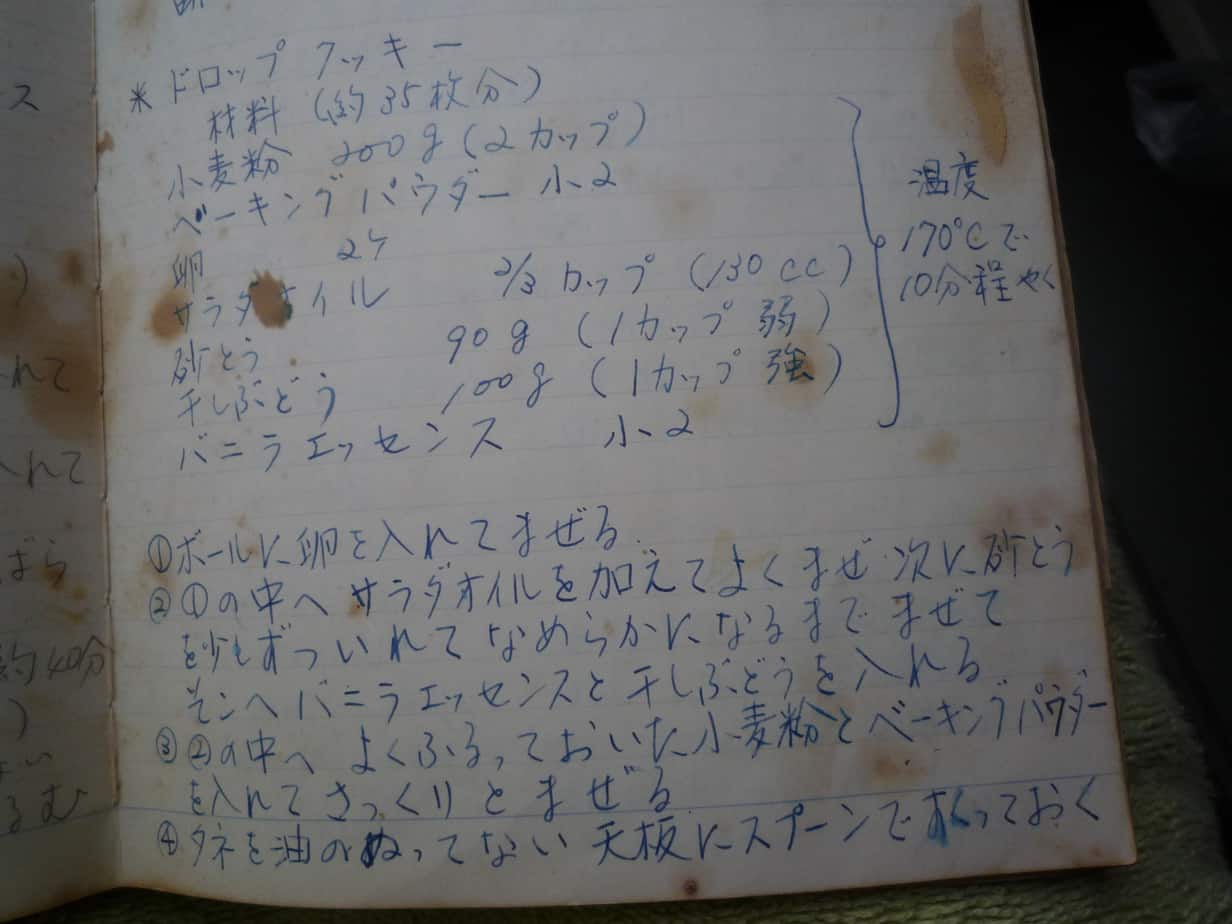 * ドロップ クッキー
材料 (約35枚分)
小麦粉 200g (2カップ)
ベーキングパウダー 小2
卵 2ケ
サラダオイル 2/3カップ (130cc)
砂とう 90g (1カップ弱)
干しぶどう 100g (1カップ強)
バニラエッセンス 小2
温度
170°Cで
10分程やく
①ボールに卵を入れてまぜる.
②①の中へサラダオイルを加えてよくまぜ次に砂とう
を少しずついれてなめらかになるまでまぜて
そこへバニラエッセンスと干しぶどうを入れる
③②の中へよくふるっておいた小麦粉とベーキングパウダー
を入れてさっくりとまぜる
④タネを油のぬってない天板にスプーンですくっておく
ス
)
れて
入れて
ばら
約40分
)
るむ